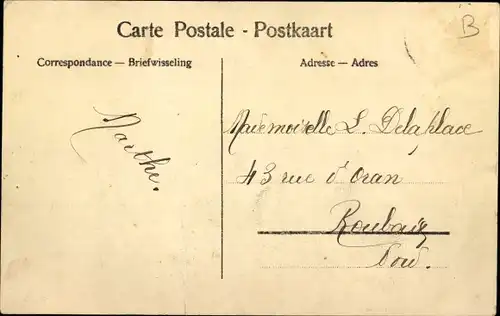 Carte Postale - Postkaart
B
Correspondance — Briefwisseling
Adresse — Adres
Marthe.
Mademoiselle L. Delaplace
43 rue d'Oran
Roubaix
Nord.